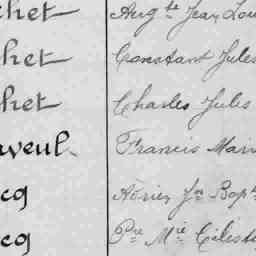 chet Aug.te Jean Lou
het Constant Jules
het Charles Jules
aveul Francis Mari
cq Aimée J.n Bapt
cq P.re M.ie Célest